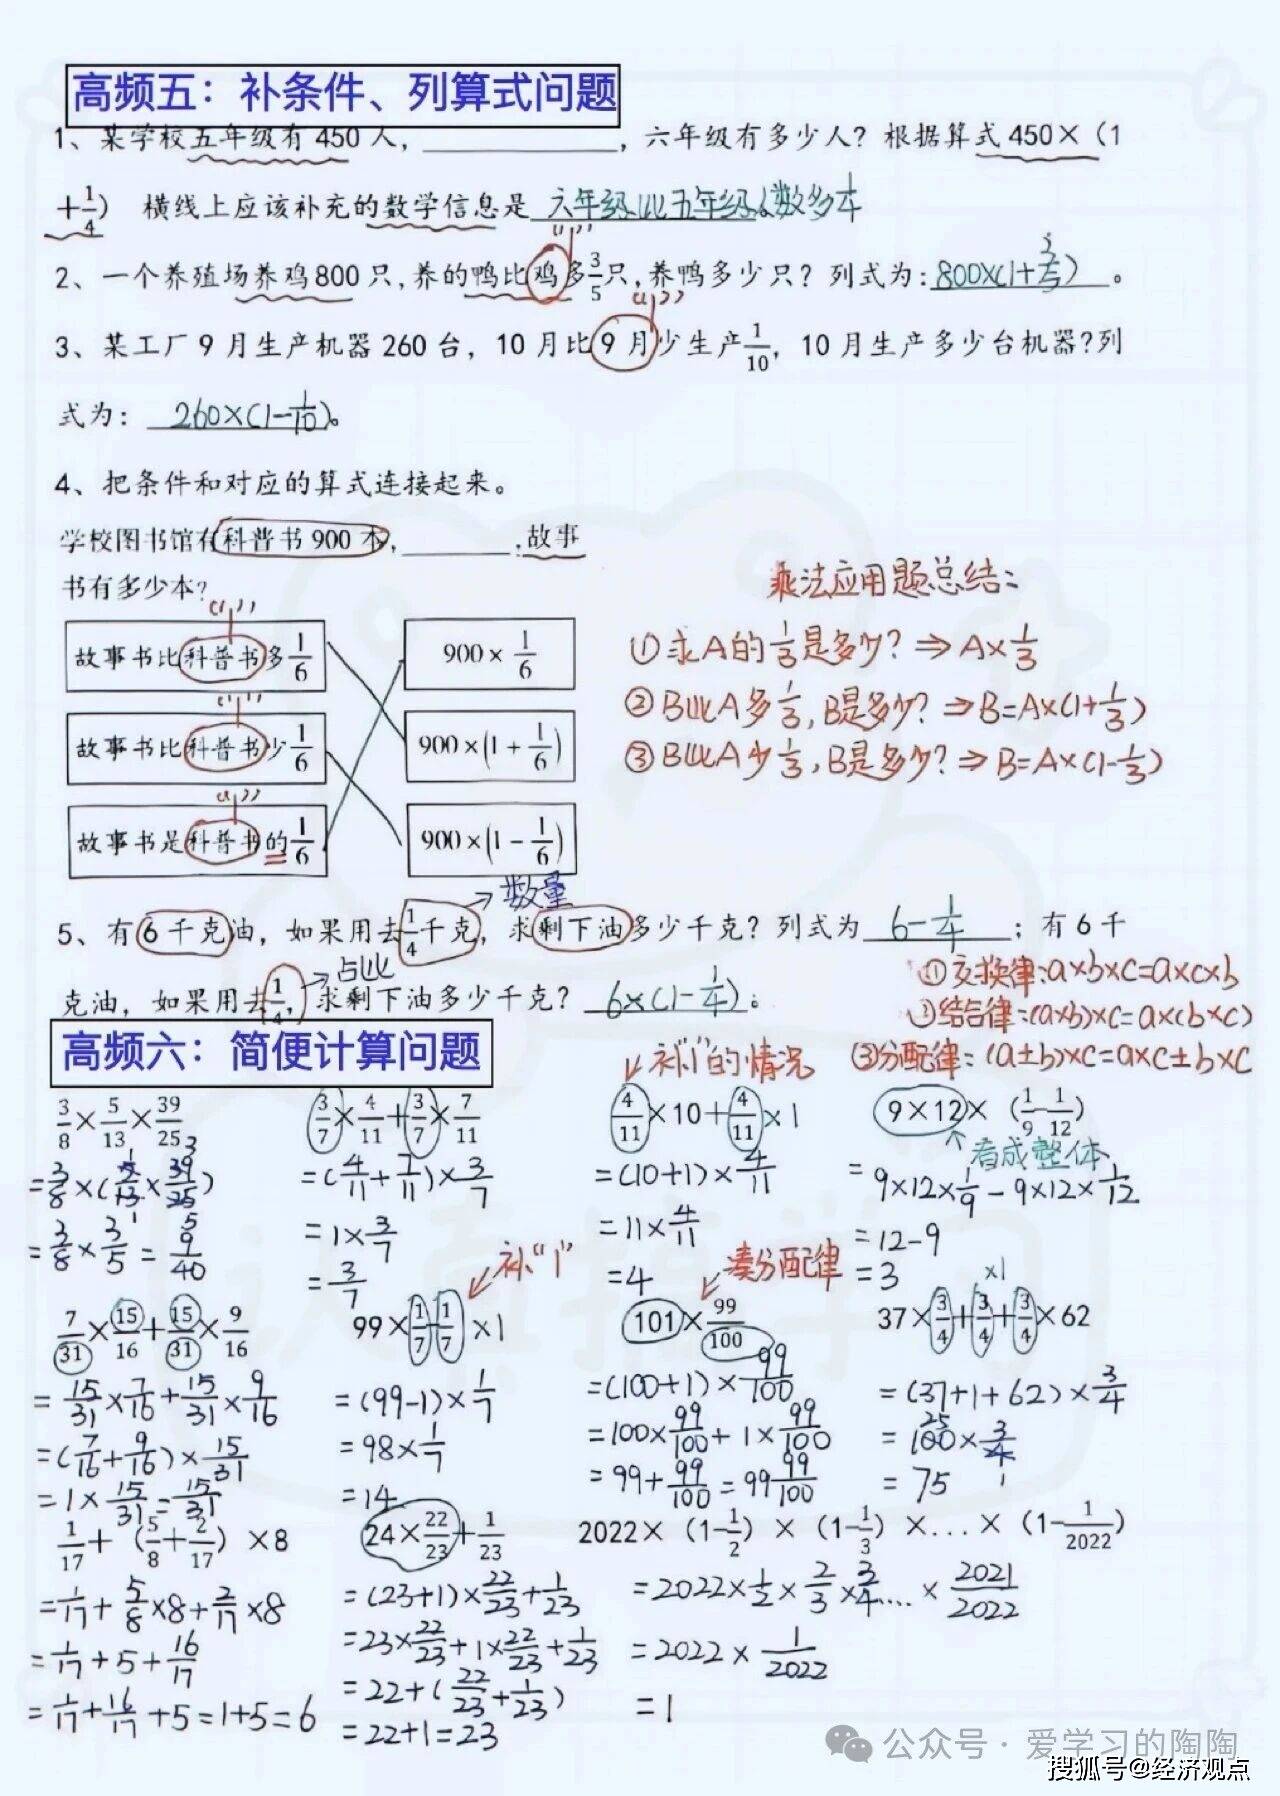 高频五：补条件、列算式问题
1、某学校五年级有 450 人，__________，六年级有多少人？根据算式 450×（1
+1/4） 横线上应该补充的数学信息是 六年级比五年级人数多1/4
“1”
2、一个养殖场养鸡800只,养的鸭比鸡多3/5只,养鸭多少只？列式为:800×(1+3/5)。
“1”
3、某工厂 9 月生产机器 260 台，10 月比 9 月少生产1/10，10 月生产多少台机器?列
式为：260×(1-1/10)。
4、把条件和对应的算式连接起来。
学校图书馆有科普书 900 本，______,故事
书有多少本?
“1”
故事书比科普书多1/6
900×1/6
“1”
故事书比科普书少1/6
900×(1+1/6)
“1”
故事书是科普书的1/6
900×(1-1/6)
乘法应用题总结：
①求A的1/3是多少？⇒A×1/3
②B比A多1/3,B是多少？⇒B=A×(1+1/3)
③B比A少1/3,B是多少？⇒B=A×(1-1/3)
数量
5、有 6 千克油，如果用去1/4千克，求剩下油多少千克？列式为 6-1/4 ；有 6 千
占比
克油，如果用去1/4，求剩下油多少千克？ 6×(1-1/4)。
①交换律:a×b×c=a×c×b
②结合律:(a×b)×c=a×(b×c)
③分配律:(a±b)×c=a×c±b×c
高频六：简便计算问题
补“1”的情况
3/8×5/13×39/25
=3/8×(5/13×39/25)
=3/8×3/5=9/40
3/7×4/11+3/7×7/11
=(4/11+7/11)×3/7
=1×3/7
=3/7
4/11×10+4/11×1
=(10+1)×4/11
=11×4/11
=4
9×12×（1/9-1/12）
看成整体
=9×12×1/9-9×12×1/12
=12-9
=3
7/31×15/16+15/31×9/16
=15/31×7/16+15/31×9/16
=(7/16+9/16)×15/31
=1×15/31=15/31
补“1”
99×1/7-1/7×1
=(99-1)×1/7
=98×1/7
=14
凑分配律
101×99/100
=(100+1)×99/100
=100×99/100+1×99/100
=99+99/100=99 99/100
×1
37×3/4+3/4+3/4×62
=(37+1+62)×3/4
=100×3/4
=75
1/17+（5/8+2/17）×8
=1/17+5/8×8+2/17×8
=1/17+5+16/17
=1/17+16/17+5=1+5=6
24×22/23+1/23
=(23+1)×22/23+1/23
=23×22/23+1×22/23+1/23
=22+(22/23+1/23)
=22+1=23
2022×（1-1/2）×（1-1/3）×...×（1-1/2022）
=2022×1/2×2/3×3/4....×2021/2022
=2022×1/2022
=1
认真搞学习
公众号·爱学习的陶陶
搜狐号@经济观点